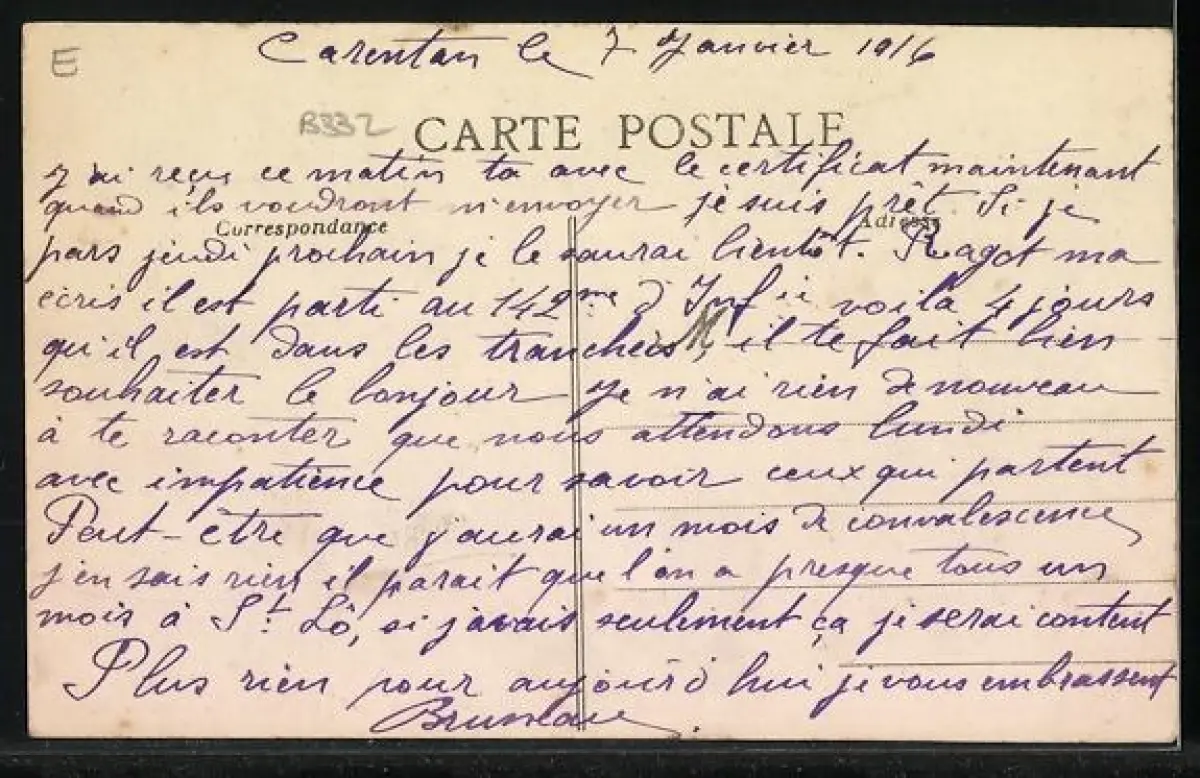 Carentan le 7 Janvier 1916
E
B332
CARTE POSTALE
J'ai reçu ce matin ta avec le certificat maintenant
quand ils voudront m'envoyer je suis prêt. Si je
Correspondance
Adresse
pars jeudi prochain je le saurai bientôt. Ragot ma
écris il est parti au 142me d'Inf ii voila 4 jours
qu'il est dans les tranchées, il te fait bien
souhaiter le bonjour Je n'ai rien de nouveau
à te raconter que nous attendons lundi
avec impatience pour savoir ceux qui partent
Peut-être que j'aurai un mois de convalescence
j'en sais rien il parait que l'on a presque tous un
mois à St. Lô, si j'avais seulement ça je serai content
Plus rien pour aujourd'hui je vous embrassent
Bruneau.